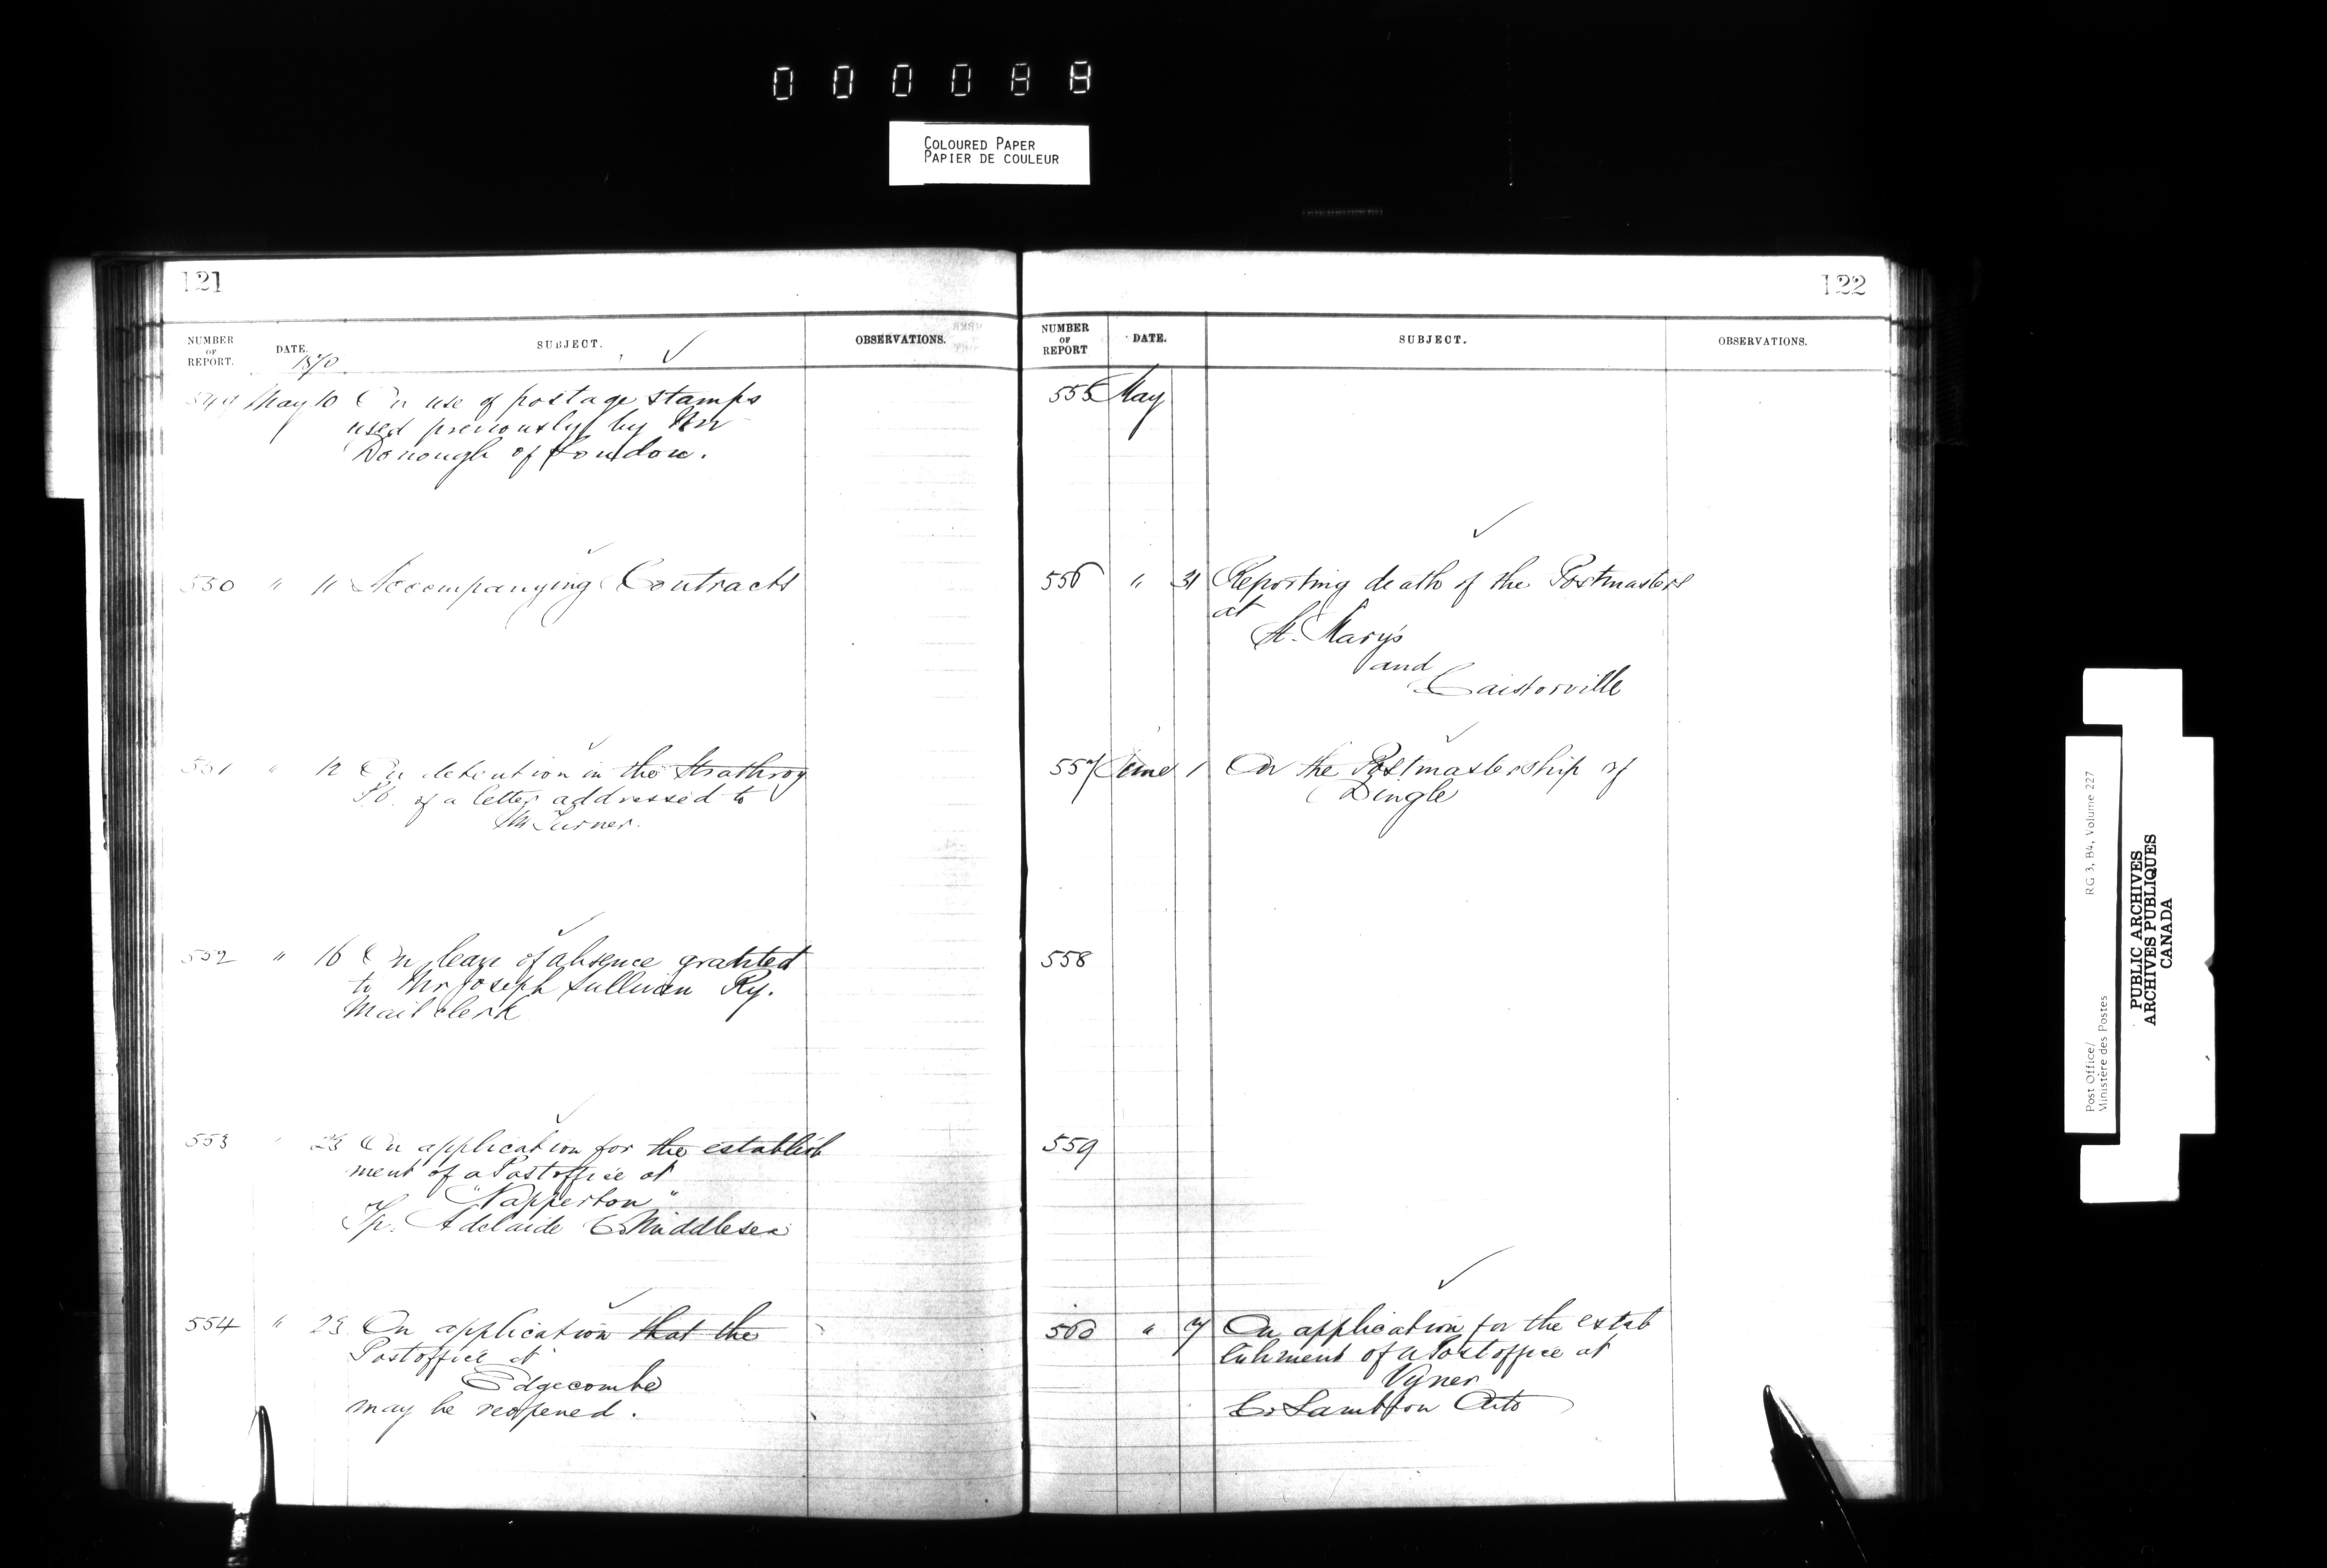 000088
COLOURED PAPER
PAPIER DE COULEUR
121
NUMBER OF REPORT. DATE. SUBJECT. OBSERVATIONS.
1870
549 May 10 On use of postage stamps
used previously by Mr
Donough of London.
550 " 11 Accompanying Contracts
551 " 12 On detention in the Strathroy
P.O. of a letter addressed to
Turner.
552 " 16 On leave of absence granted
to Mr Joseph Sullivan Ry.
Mail clerk
553 " 23 On application for the establish
ment of a Postoffice at
"Napperton"
Tp. Adelaide Co Middlesex
554 " 23 On application that the
Postoffice at
Edgecombe
may be reopened.
122
NUMBER OF REPORT DATE. SUBJECT. OBSERVATIONS.
555 May
556 " 31 Reporting death of the Postmasters
at
St. Mary's
and
Caistorville
557 June 1 On the Postmastership of
Dingle
558
559
560 " 7 On application for the estab
lishment of a Postoffice at
Vyner
Co Lambton Onto
Post Office/
Ministère des Postes
RG 3, B4, Volume 227
PUBLIC ARCHIVES
ARCHIVES PUBLIQUES
CANADA